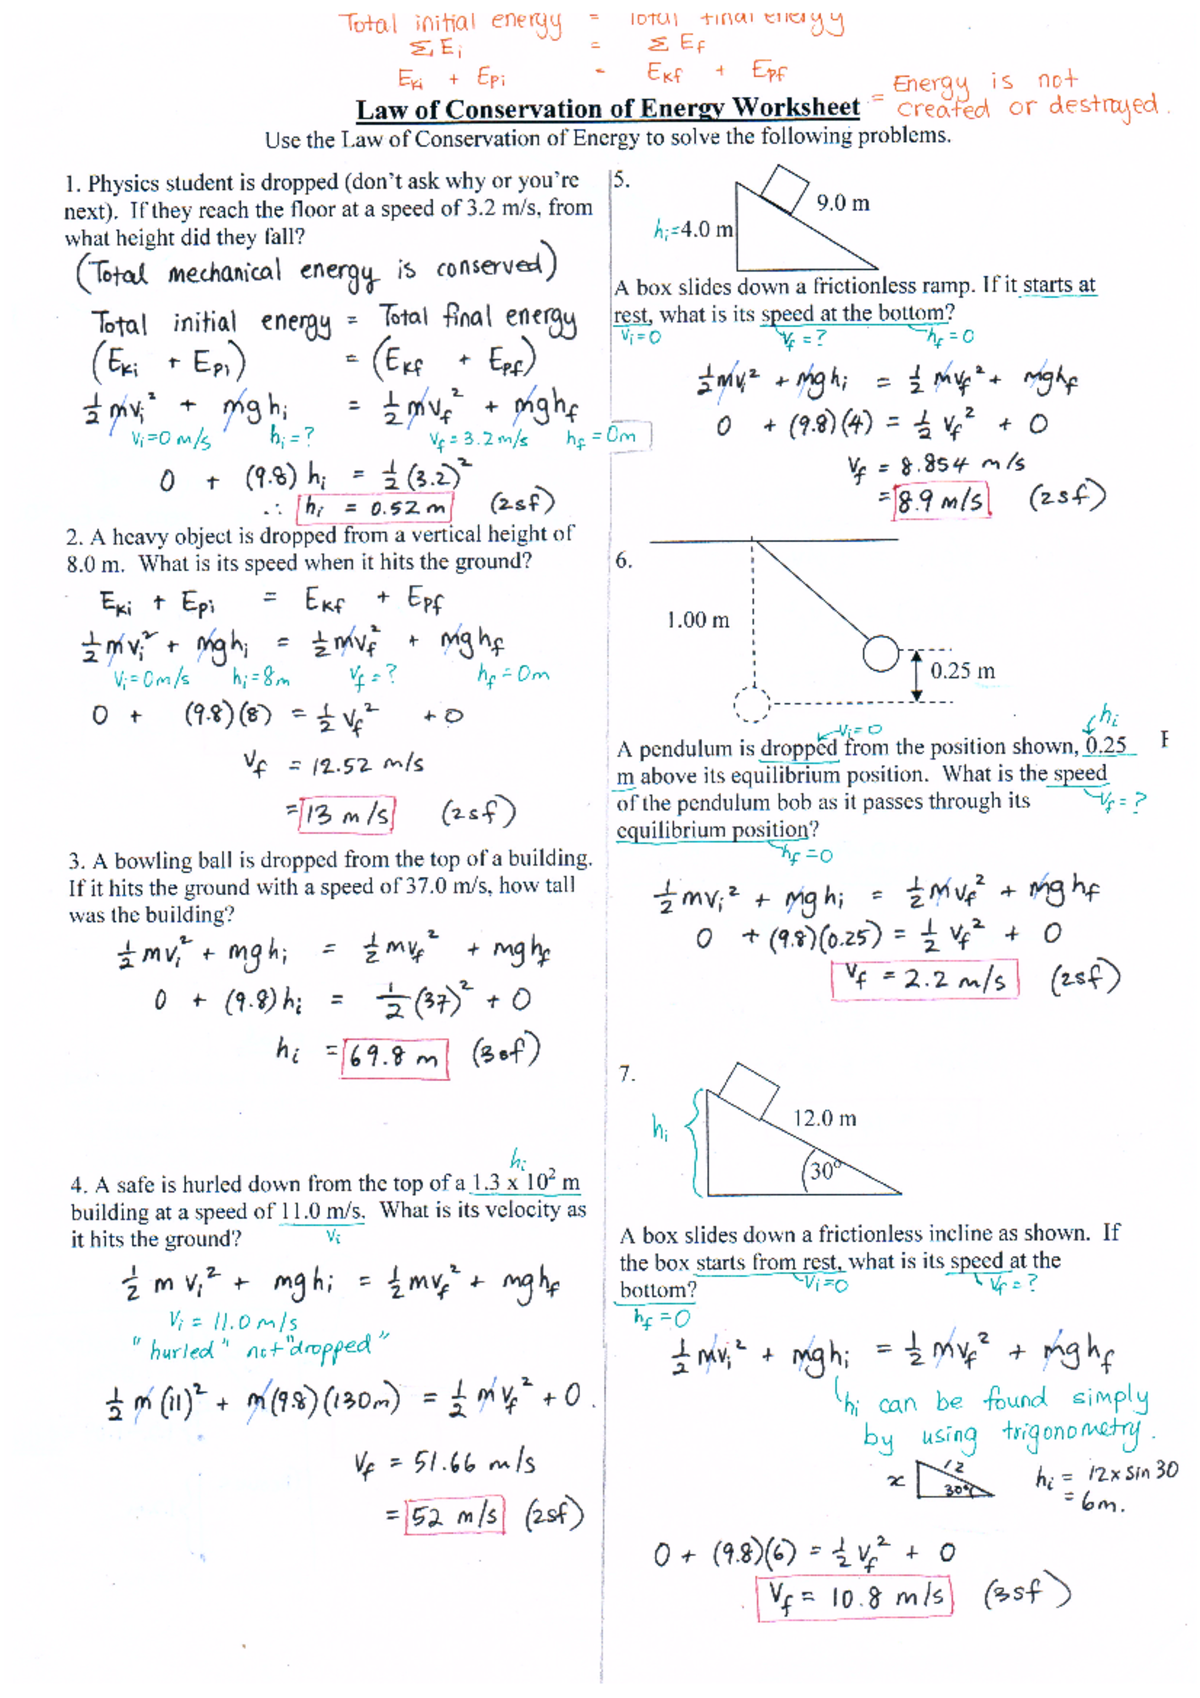 Total initial energy = Total final energy
Σ Ei = Σ Ef
Eki + Epi = Ekf + Epf
= Energy is not created or destroyed.
Law of Conservation of Energy Worksheet
Use the Law of Conservation of Energy to solve the following problems.
1. Physics student is dropped (don't ask why or you're
next). If they reach the floor at a speed of 3.2 m/s, from
what height did they fall?
(Total mechanical energy is conserved)
Total initial energy = Total final energy
(Eki + Epi) = (Ekf + Epf)
½mvi² + mghi = ½mvf² + mghf
vi=0 m/s hi=? vf=3.2m/s hf=0m
0 + (9.8)hi = ½(3.2)²
∴ hi = 0.52 m (2sf)
2. A heavy object is dropped from a vertical height of
8.0 m. What is its speed when it hits the ground?
Eki + Epi = Ekf + Epf
½mvi² + mghi = ½mvf² + mghf
vi=0m/s hi=8m vf=? hf=0m
0 + (9.8)(8) = ½vf² + 0
vf = 12.52 m/s
= 13 m/s (2sf)
3. A bowling ball is dropped from the top of a building.
If it hits the ground with a speed of 37.0 m/s, how tall
was the building?
½mvi² + mghi = ½mvf² + mghf
0 + (9.8)hi = ½(37)² + 0
hi = 69.8 m (3sf)
hi
4. A safe is hurled down from the top of a 1.3 x 10² m
building at a speed of 11.0 m/s. What is its velocity as
it hits the ground?
vi
½mvi² + mghi = ½mvf² + mghf
vi = 11.0 m/s
"hurled" not "dropped"
½m(11)² + m(9.8)(130m) = ½mvf² + 0.
vf = 51.66 m/s
= 52 m/s (2sf)
5.
9.0 m
hi=4.0 m
A box slides down a frictionless ramp. If it starts at
rest, what is its speed at the bottom?
vi=0 vf=? hf=0
½mvi² + mghi = ½mvf² + mghf
0 + (9.8)(4) = ½vf² + 0
vf = 8.854 m/s
= 8.9 m/s (2sf)
6.
1.00 m
0.25 m
vi=0 hi
A pendulum is dropped from the position shown, 0.25
m above its equilibrium position. What is the speed
of the pendulum bob as it passes through its
vf=?
equilibrium position?
hf=0
½mvi² + mghi = ½mvf² + mghf
0 + (9.8)(0.25) = ½vf² + 0
vf = 2.2 m/s (2sf)
7.
12.0 m
hi
30°
A box slides down a frictionless incline as shown. If
the box starts from rest, what is its speed at the
vi=0 vf=?
bottom?
hf=0
½mvi² + mghi = ½mvf² + mghf
hi can be found simply
by using trigonometry.
x 12 30° hi = 12 x sin 30
= 6m.
0 + (9.8)(6) = ½vf² + 0
vf = 10.8 m/s (3sf)